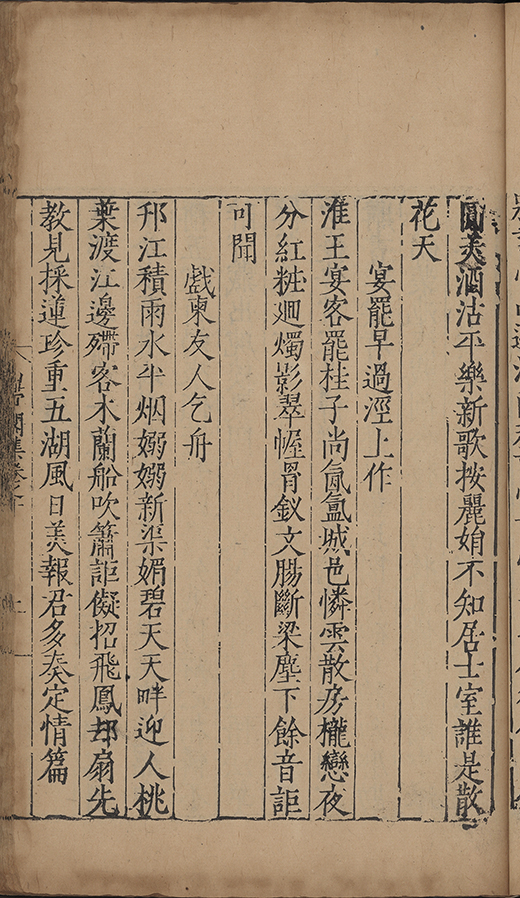 美酒沽平樂新歌按麗娟不知居士室誰是散
花天
宴罷早過淫上作
淮王宴客罷桂子尚氤氳城邑憐雲散房櫳戀夜
分紅粧廻燭影翠幄罥釵文腸斷梁塵下餘音詎
可聞
戲柬友人乞舟
邗江積雨水平烟嫋嫋新渠媚碧天天畔迎人桃
葉渡江邊殢客木蘭船吹簫詎儗招飛鳳却扇先
教見採蓮珍重五湖風日美報君多奏定情篇